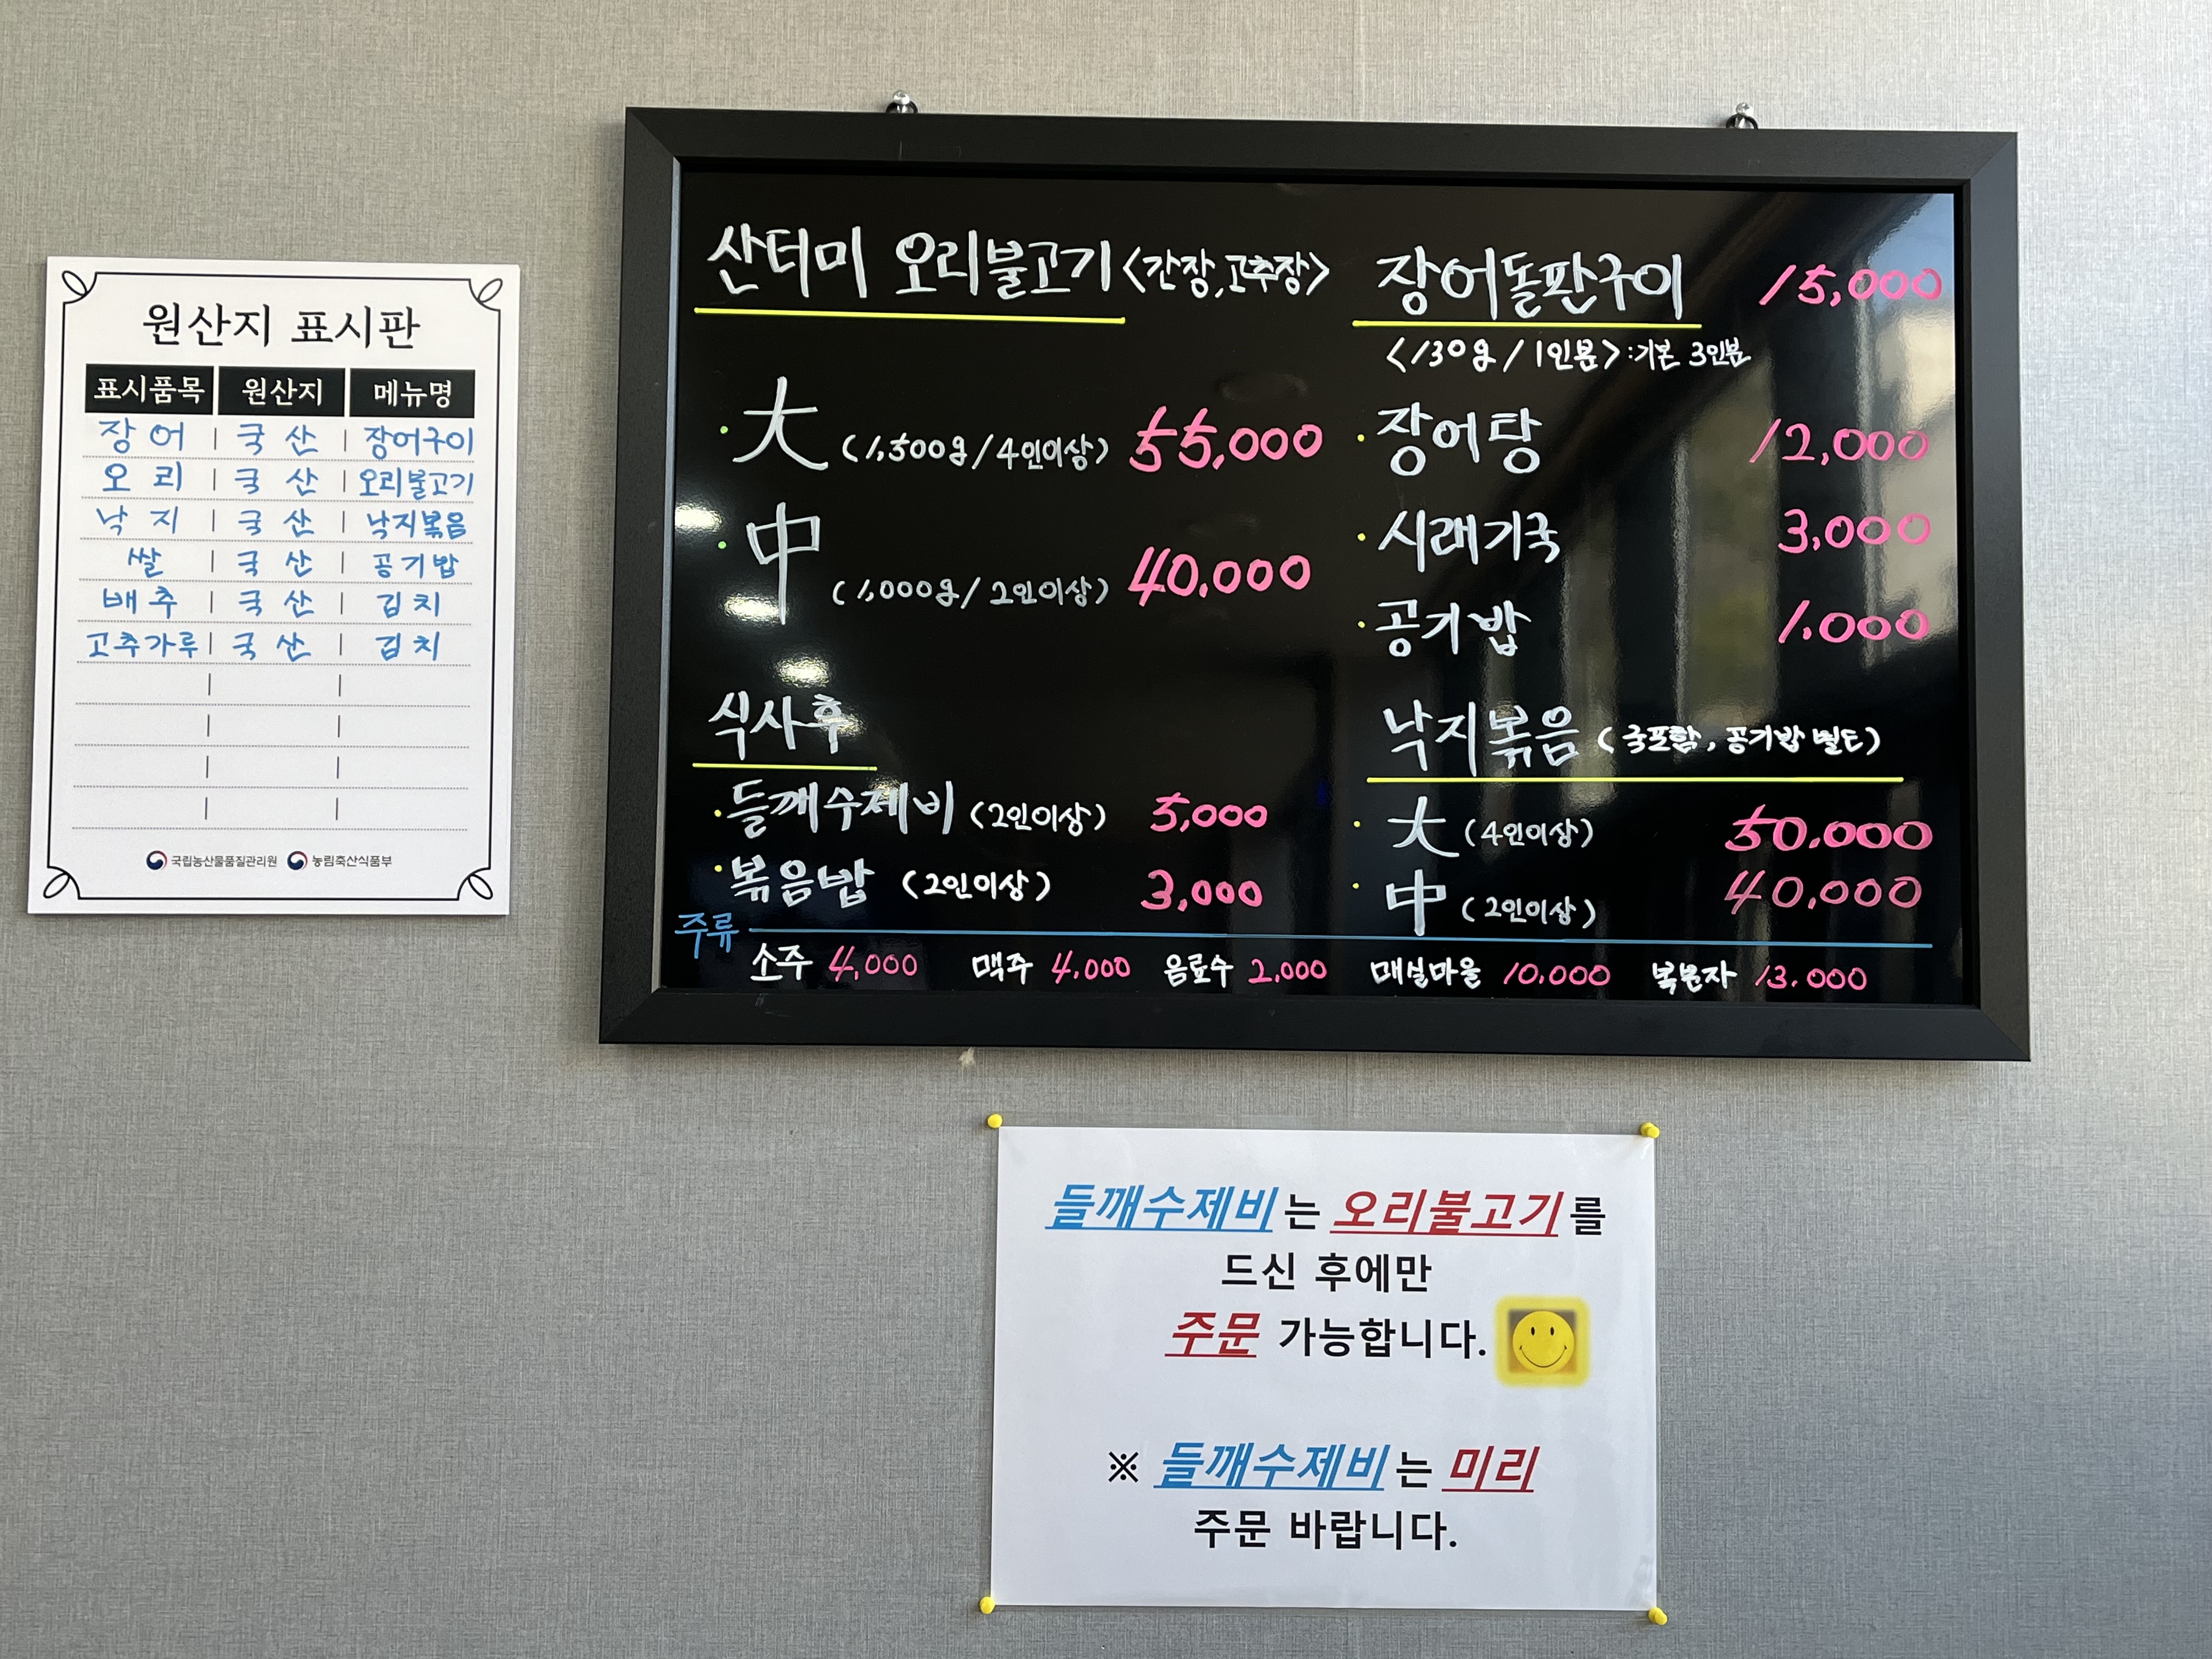 원산지 표시판
표시품목 원산지 메뉴명
장어 국산 장어구이
오리 국산 오리불고기
낙지 국산 낙지볶음
쌀 국산 공기밥
배추 국산 김치
고추가루 국산 김치
국립농산물품질관리원 농림축산식품부
산더미 오리불고기 <간장,고추장>
·大 (1,500g/4인이상) 55,000
·中 (1,000g/2인이상) 40,000
식사후
·들깨수제비 (2인이상) 5,000
·볶음밥 (2인이상) 3,000
장어돌판구이 15,000
<130g/1인분>:기본 3인분
·장어탕 12,000
·시래기국 3,000
·공기밥 1,000
낙지볶음 (국포함, 공기밥 별도)
·大 (4인이상) 50,000
·中 (2인이상) 40,000
주류
소주 4,000 맥주 4,000 음료수 2,000 매실마을 10,000 복분자 13,000
들깨수제비는 오리불고기를
드신 후에만
주문 가능합니다.
※ 들깨수제비는 미리
주문 바랍니다.